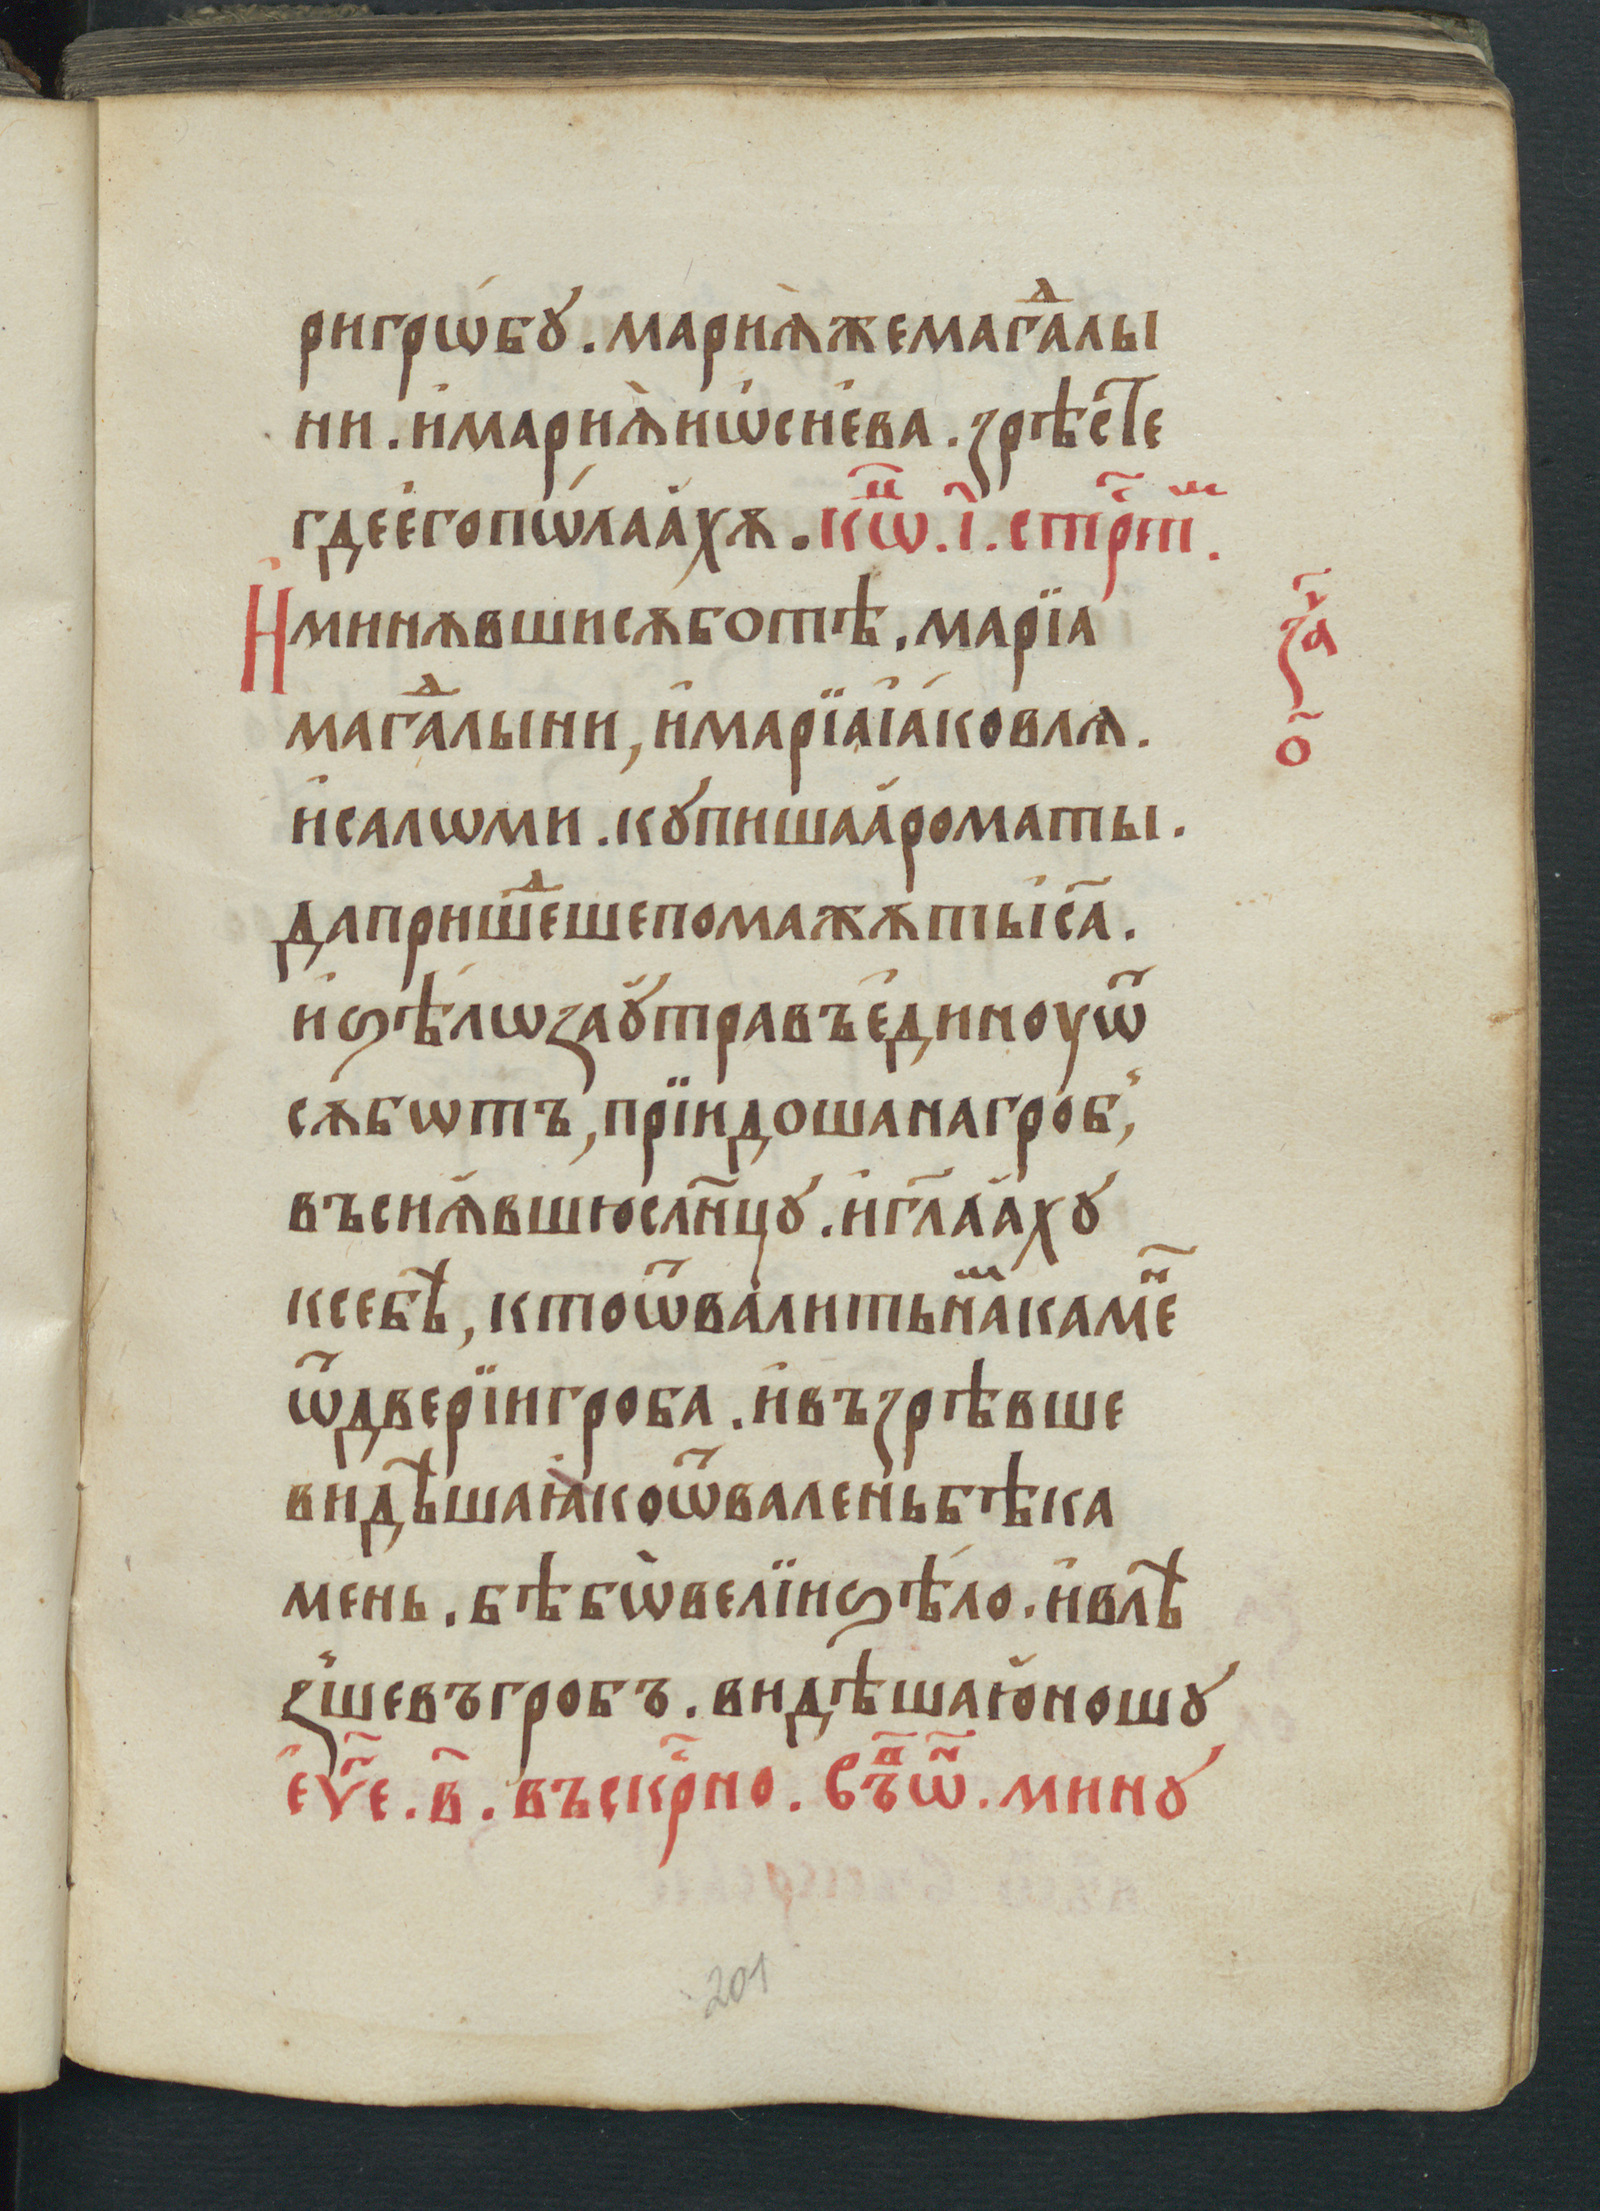 ригрѡ́бꙋ . марїѧ̀жемагⷣалы
ни . и҆марїѧ̀иѡ҆сїева . зрѣ́сте
гдеего̀пѡ́лаа҆хѫ . кѡⷩ҇ . і҃ . стрⷭ҇тⷨ .
И҆минѫвшисѫботѣ . марїа
магⷣалыни , и҆марїаі҆а́ковлѧ .
и҆салѡми . кꙋпишаа҆роматы .
дапришеⷣшепомажѫтьі҆са̃ .
и҆ѕѣ́лѡзаꙋ҆травъе҆диноуѿ
сѫбѡтъ , прїидошанагроб ,
въсиѧ҆вшюсл҃нцꙋ . и҆гл҃аа҆хꙋ
ксебѣ , ктоѿвалитьнаⷨ҇камеⷩ҇
ѿдверїигроба . и҆възрѣвше
видѣшаꙗ҆коѿваленьбѣка
мень . бѣбѡ̀велїиѕѣ́ло . и҆влѣ
зшевъгробъ . видѣшаю҆ношꙋ
зⷱ҇а
о҃
е҆ѵⷢ҇е . в҃ . въскрⷭ҇но . въпⷪѿⷩ҇ . минꙋ
201